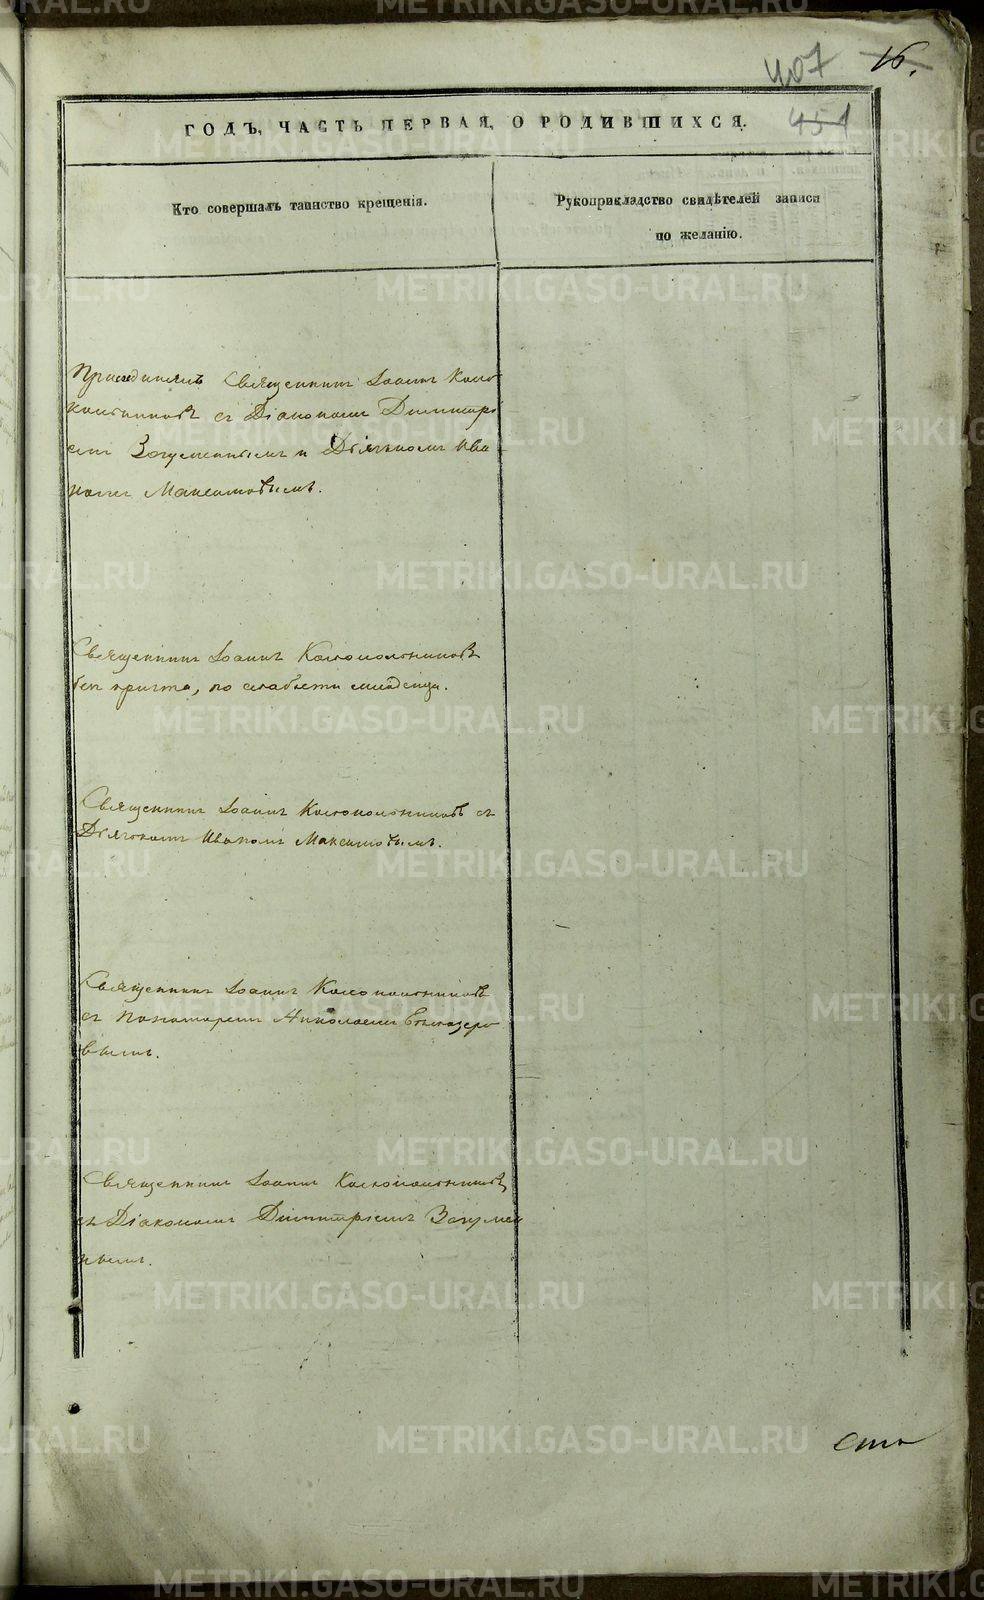 407
16.
451
ГОДЪ, ЧАСТЬ ПЕРВАЯ, О РОДИВШИХСЯ.
Кто совершалъ таинство крещенія.
Рукоприкладство свидѣтелей записи
по желанію.
Присоединялъ Священникъ Іоаннъ Коло
кольниковъ съ Діакономъ Димитрі
емъ Загуменнымъ и Дьячкомъ Ива-
номъ Максимовымъ.
Священникъ Іоаннъ Колокольниковъ
безъ причта, по слабости младенца.
Священникъ Іоаннъ Колокольниковъ съ
Дьячкомъ Иваномъ Максимовымъ.
Священникъ Іоаннъ Колокольниковъ
съ Пономаремъ Николаемъ
вымъ.
Священникъ Іоаннъ Колокольниковъ
съ Діакономъ Димитріемъ Загумен
нымъ.
METRIKI.GASO-URAL.RU